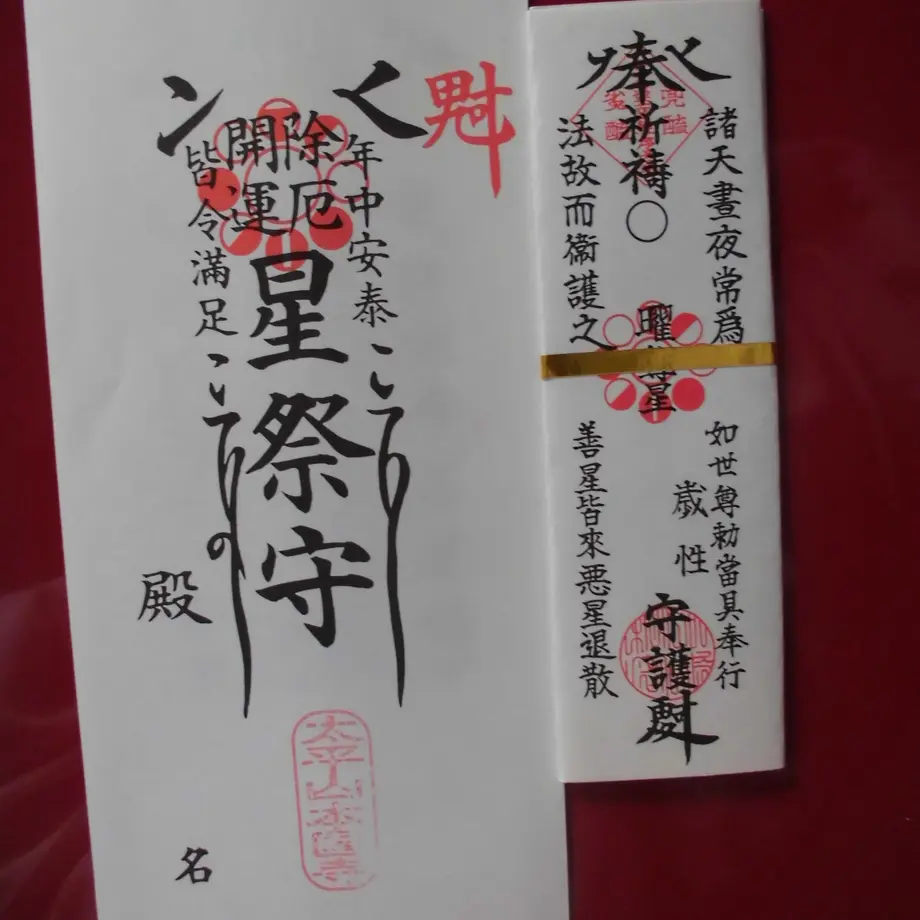 魁
年中安泰
除厄
開運
皆令滿足
星祭守
殿
名
太平山本
寺
奉祈禱〇
曜尊星
諸天晝夜常爲
法故而衞護之
如世尊勅當具奉行
歳性
守護
善星皆來悪星退散